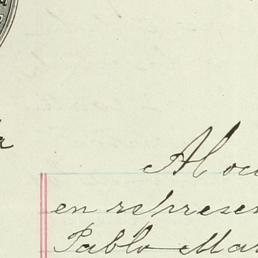 Al oc
en represe
Pablo Mar